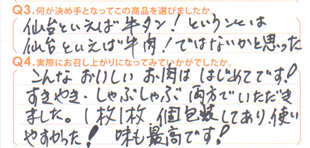 Q3.何が決め手となってこの商品を選びましたか。
仙台といえば牛タン！というンとは
仙台といえば牛肉！ではないかと思った
Q4.実際にお召し上がりになってみていかがでしたか。
こんなおいしいお肉ははじめてです！
すきやき・しゃぶしゃぶ両方でいただき
ました。1枚1枚、個包装してあり、使い
やすかった！味も最高です！